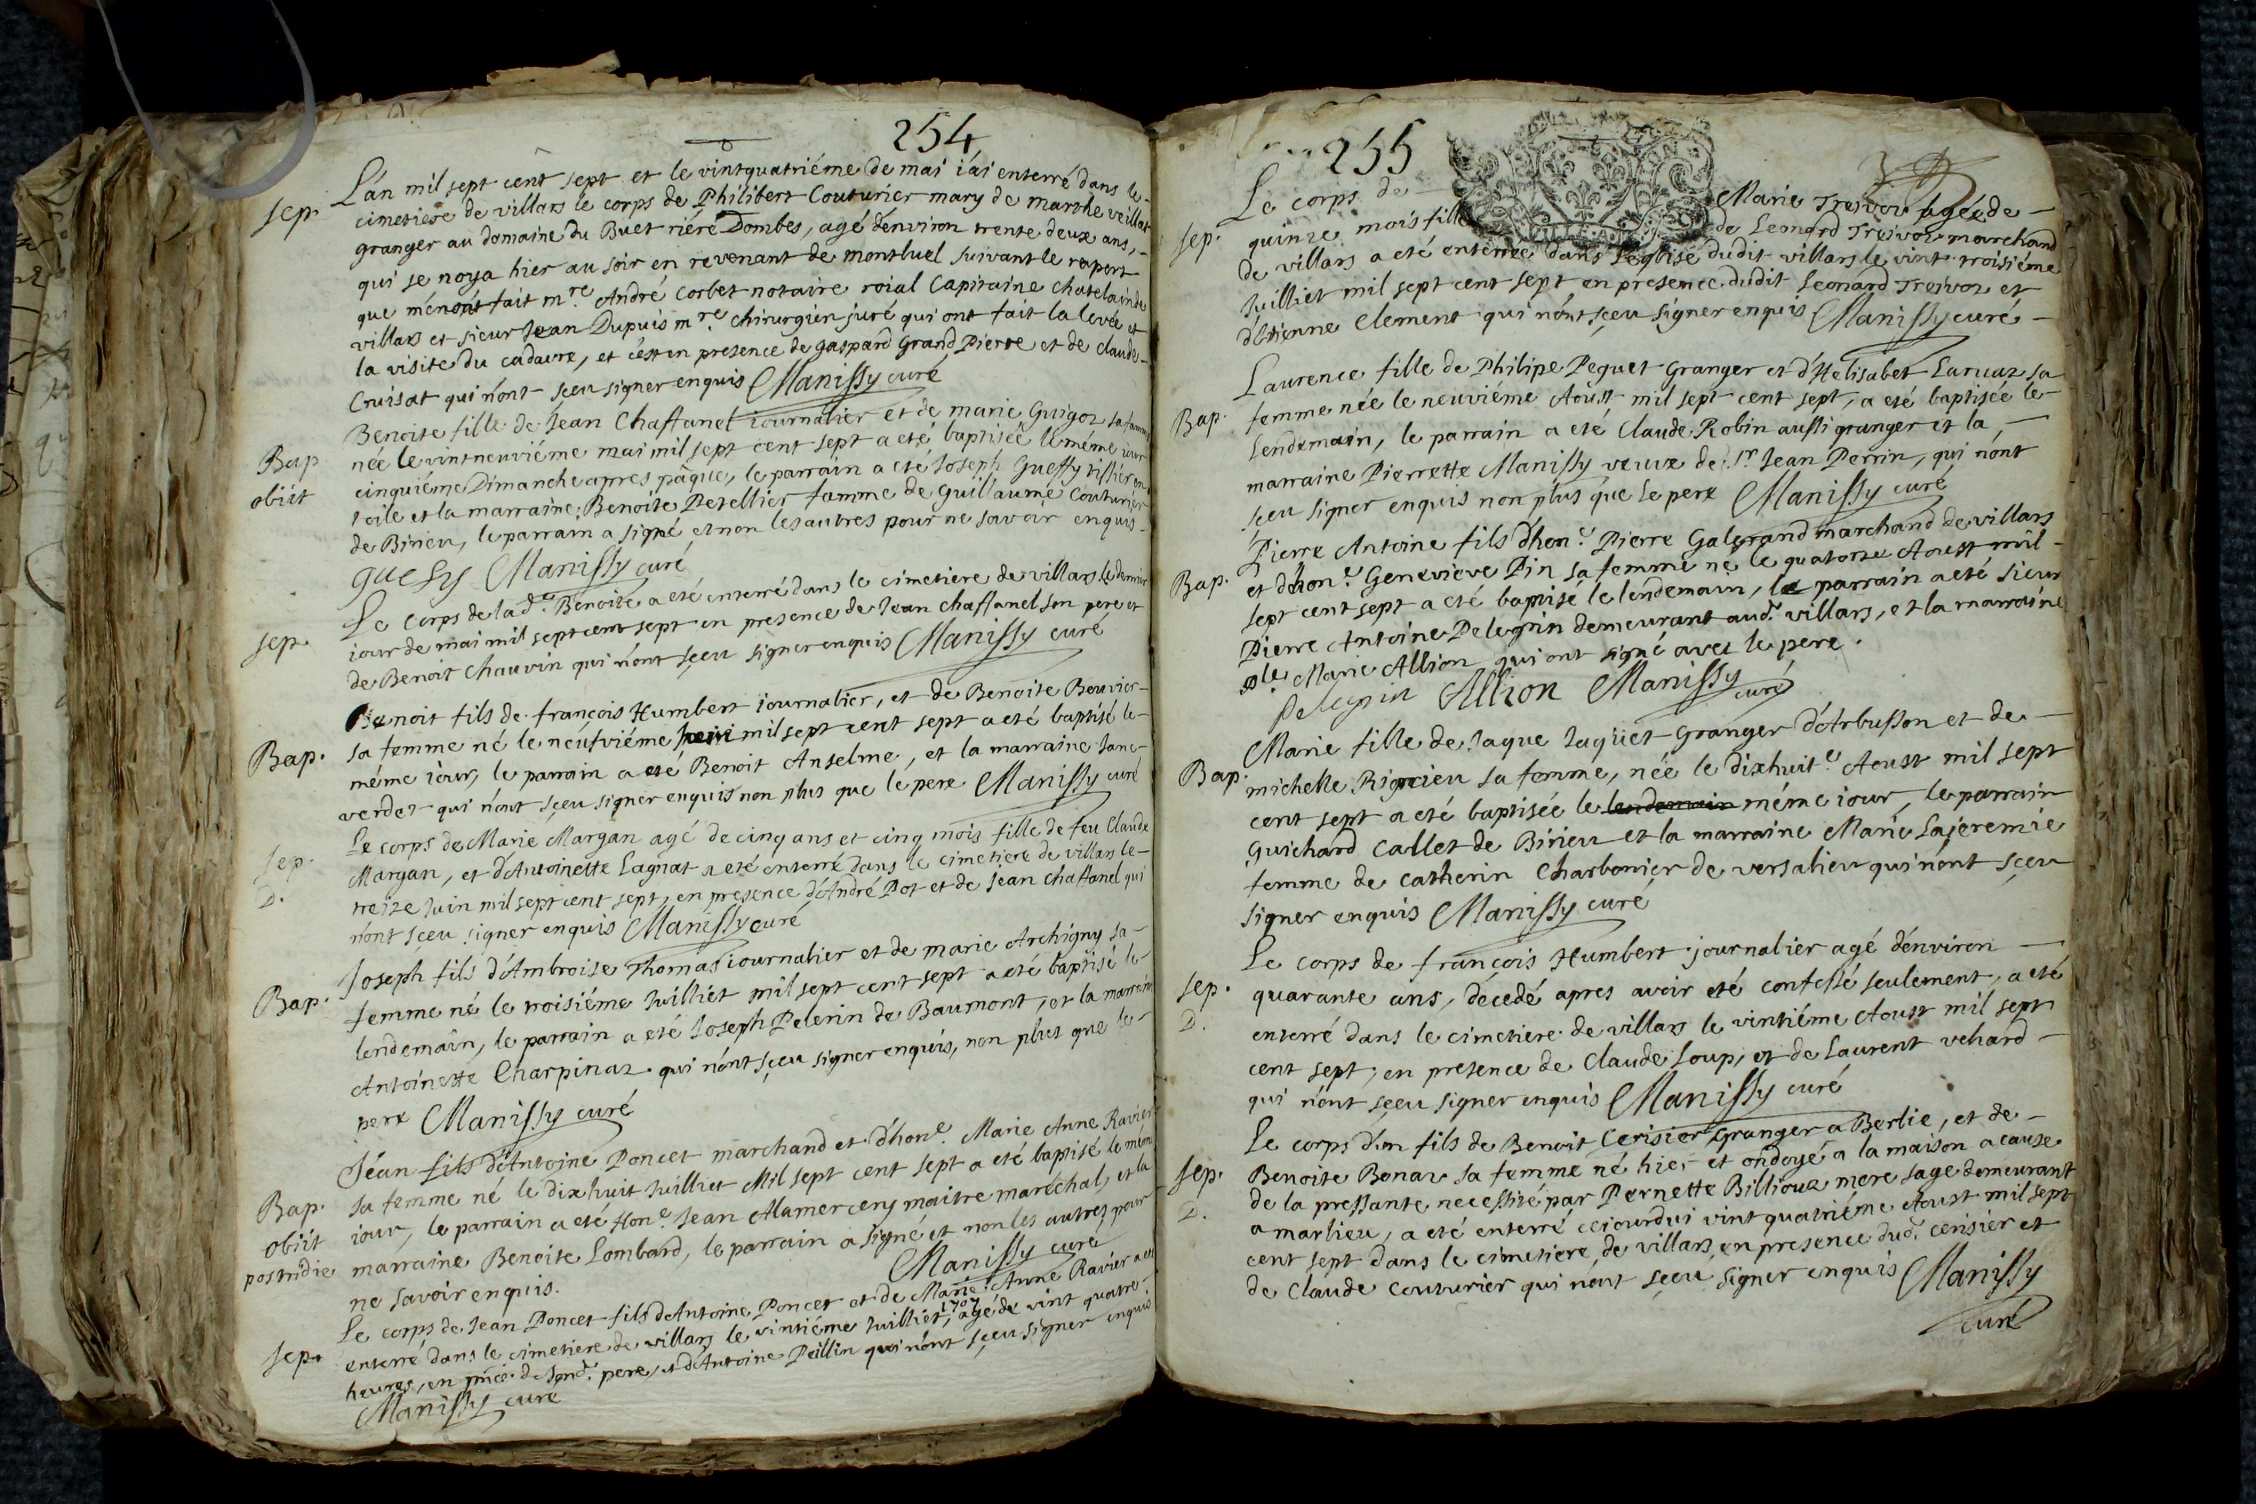 254
sep. L'an mil sept cent sept et le vintquatriéme de mai i'ai enterré dans le
cimetiere de villars le corps de Philibert Couturier mary de marthe veillat
granger au domaine du Buet riére Dombes, agé d'environ trente deux ans,
qui se noya hier au soir en revenant de montluel suivant le raport
que m'enont fait mre. André Corbet notaire roial Capitaine chatelain de
villars et sieur Jean Dupuis mre. chirurgien juré qui ont fait la levée et
la visite du cadavre, et c'est en presence de gaspard Grand Pierre et de claude
Cruisat qui n'ont sçeu signer enquis Manissy curé
Bap obiit
Benoite fille de Jean Chaffanel iournalier et de marie Guigoz sa femme
née le vintneuviéme mai mil sept cent sept a eté baptisée le même iour
cinquiéme Dimanche apres pâque, le parrain a eté Joseph Gueffy tissier en
toile et la marraine Benoite Perellier femme de Guillaume Couturier
de Birieu, le parrain a signé et non les autres pour ne savoir enquis
guesy Manissy curé
sep. Le corps de lade. Benoite a eté enterré dans le cimetiere de villars le dernier
iour de mai mil sept cent sept en presence de Jean chaffanel son pere et
de Benoit Chauvin qui n'ont sçeu signer enquis Manissy curé
Bap. Benoit fils de françois Humbert iournalier, et de Benoite Bouvier
sa femme né le neufviéme juin mil sept cent sept a eté baptisé le
même iour, le parrain a eté Benoit Anselme, et la marraine Jane
verdet qui n'ont sçeu signer enquis non plus que le pere Manissy curé
sep. D. Le corps de Marie Margan agé de cinq ans et cinq mois fille de feu Claude
Margan, et d'Antoinette Lagnat a eté enterré dans le cimetiere de villars le
treize Juin mil sept cent sept, en presence d'André Pot et de Jean chaffanel qui
n'ont sçeu signer enquis Manissy curé
Bap. Joseph fils d'Ambroise Thomas iournalier et de marie Archigny sa
femme né le troisiéme Juilliet mil sept cent sept a eté baptisé le
lendemain, le parrain a eté Joseph Pelerin de Baumont, et la marraine
Antoinette Charpinaz qui n'ont sçeu signer enquis, non plus que le
pere Manissy curé
Bap. obiit postridie
Jean fils d'Antoine Poncet marchand et d'hone. Marie Anne Ravier
sa femme né le dixhuit Juilliet Mil sept cent sept a eté baptisé le même
iour, le parrain a eté Hone. Jean Alamerceny maitre marechal, et la
marraine Benoite Lombard, le parrain a signé et non les autres pour
ne savoir enquis. Manissy curé
sep. Le corps de Jean Poncet fils d'Antoine Poncet et de Marie Anne Ravier a eté
enterré dans le cimetiere de villars le vintiéme Juilliet, 1707 agé de vint quatre
heures, en pnce. de sond. pere, et d'Antoine Peillin qui n'ont sçeu signer enquis
Manissy curé
255
sep. Le corps de Marie Treivoz agée de
quinze mois fille de Leonard Treivoz marchand
de villars a eté enterrée dans l'eglise dudit villars le vint troisiéme
Juilliet mil sept cent sept, en presence dudit Leonard Treivoz et
d'étienne Clement qui n'ont sçeu signer enquis Manissy curé
Bap. Laurence fille de Philipe Peguet Granger et d'Helisabet Laruaz sa
femme née le neuviéme Aoust mil sept cent sept, a eté baptisée le
lendemain, le parrain a eté Claude Robin aussi granger et la
marraine Pierrette Manissy veuve de Sr. Jean Perrin, qui n'ont
sçeu signer enquis non plus que le pere Manissy curé
Bap. Pierre Antoine fils d'hone. Pierre Galerand marchand de villars
et d'hone. Genevieve Pin sa femme né le quatorze Aoust mil
sept cent sept a eté baptisé le lendemain, le parrain a eté sieur
Pierre Antoine Pelegrin demeurant aud. villars, et la marraine
dlle. Marie Allion qui ont signé avec le pere.
Pelegrin Allion Manissy curé
Bap. Marie fille de Jaque Jaquet Granger d'Arbusson et de
michelle Rignieu sa femme, née le dixhuite. Aoust mil sept
cent sept a eté baptisée le lendemain même iour, le parrain
Guichard Callet de Birieu et la marraine Marie Lajeremie
femme de Catherin Charbonier de versalieu qui n'ont sçeu
signer enquis Manissy curé
sep. D. Le corps de françois Humbert journalier agé d'environ
quarante ans, décedé apres avoir eté confessé seulement, a eté
enterré dans le cimetiere de villars le vintiéme Aoust mil sept
cent sept, en presence de Claude Loup, et de Laurent vehard
qui n'ont sçeu signer enquis Manissy curé
sep. D. Le corps d'un fils de Benoit Cerisier Granger a Berlie, et de
Benoite Bonaz sa femme né hier et ondoyé a la maison a cause
de la pressante necessité par Pernette Billioux mere sage demeurant
a marlieu, a eté enterré cejourdui vint quatriéme Aoust mil sept
cent sept dans le cimetiere de villars en presence dud. cerisier et
de Claude Couturier qui n'ont sçeu signer enquis Manissy
curé